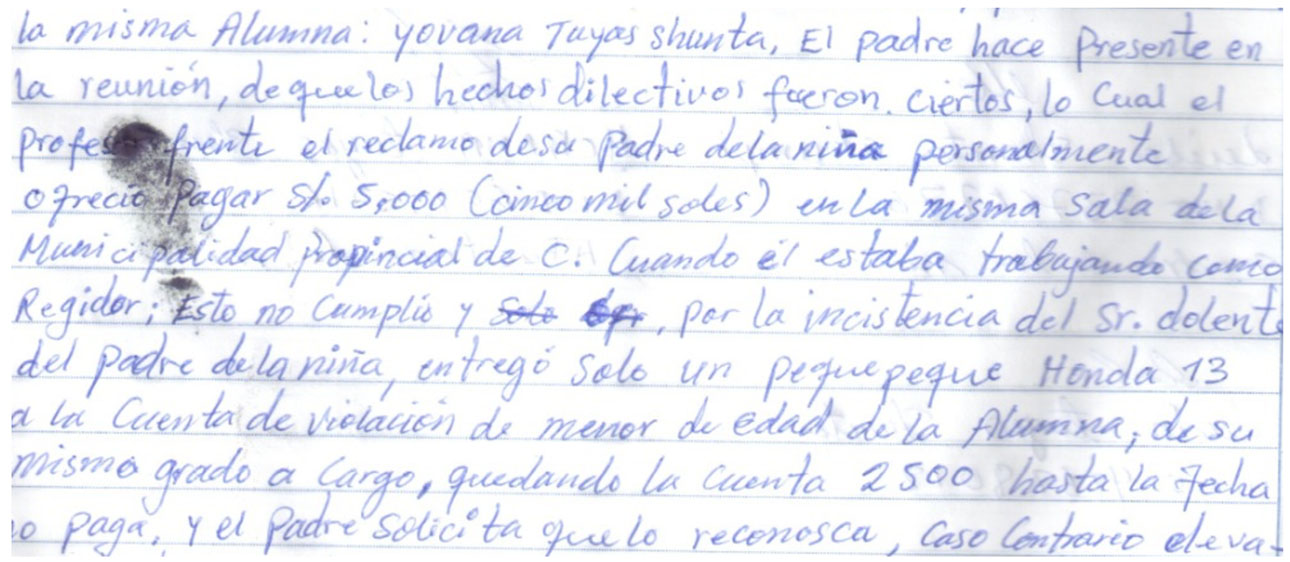 la misma Alumna: yovana Tuyas shunta, El padre hace presente en
la reunión, de que los hechos dilectivos fueron. Ciertos, lo Cual el
profesor frente el reclamo de su padre dela niña personalmente
ofreció pagar S/. 5,000 (cinco mil soles) en la misma sala de la
Municipalidad propincial de C. Cuando él estaba trabajando como
Regidor; Esto no Cumplió y solo, por la incistencia del Sr. dolente
del padre de la niña, entregó solo un pequepeque Honda 13
a la Cuenta de violación de menor de edad de la Alumna, de su
mismo grado a Cargo, quedando la cuenta 2500 hasta la fecha
no paga, y el padre solicita que lo reconosca, Caso Contrario eleva-